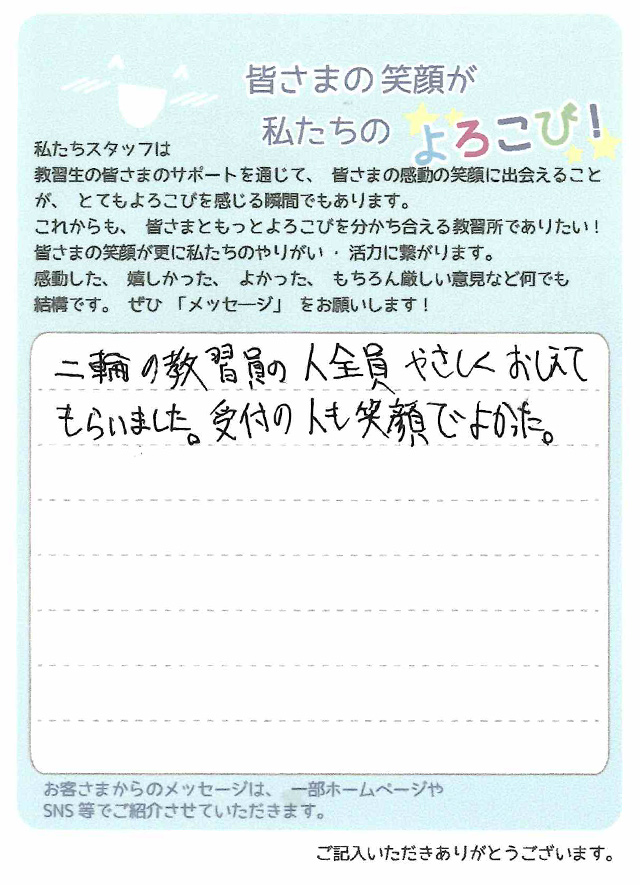 皆さまの笑顔が
私たちの よろこび!
私たちスタッフは
教習生の皆さまのサポートを通じて、 皆さまの感動の笑顔に出会えること
が、 とてもよろこびを感じる瞬間でもあります。
これからも、 皆さまともっとよろこびを分かち合える教習所でありたい!
皆さまの笑顔が更に私たちのやりがい ・ 活力に繋がります。
感動した、 嬉しかった、 よかった、 もちろん厳しい意見など何でも
結構です。 ぜひ 「メッセージ」 をお願いします!
二輪の教習員の人全員やさしくおしえて
もらいました。受付の人も笑顔でよかった。
お客さまからのメッセージは、 一部ホームページや
SNS 等でご紹介させていただきます。
ご記入いただきありがとうございます。